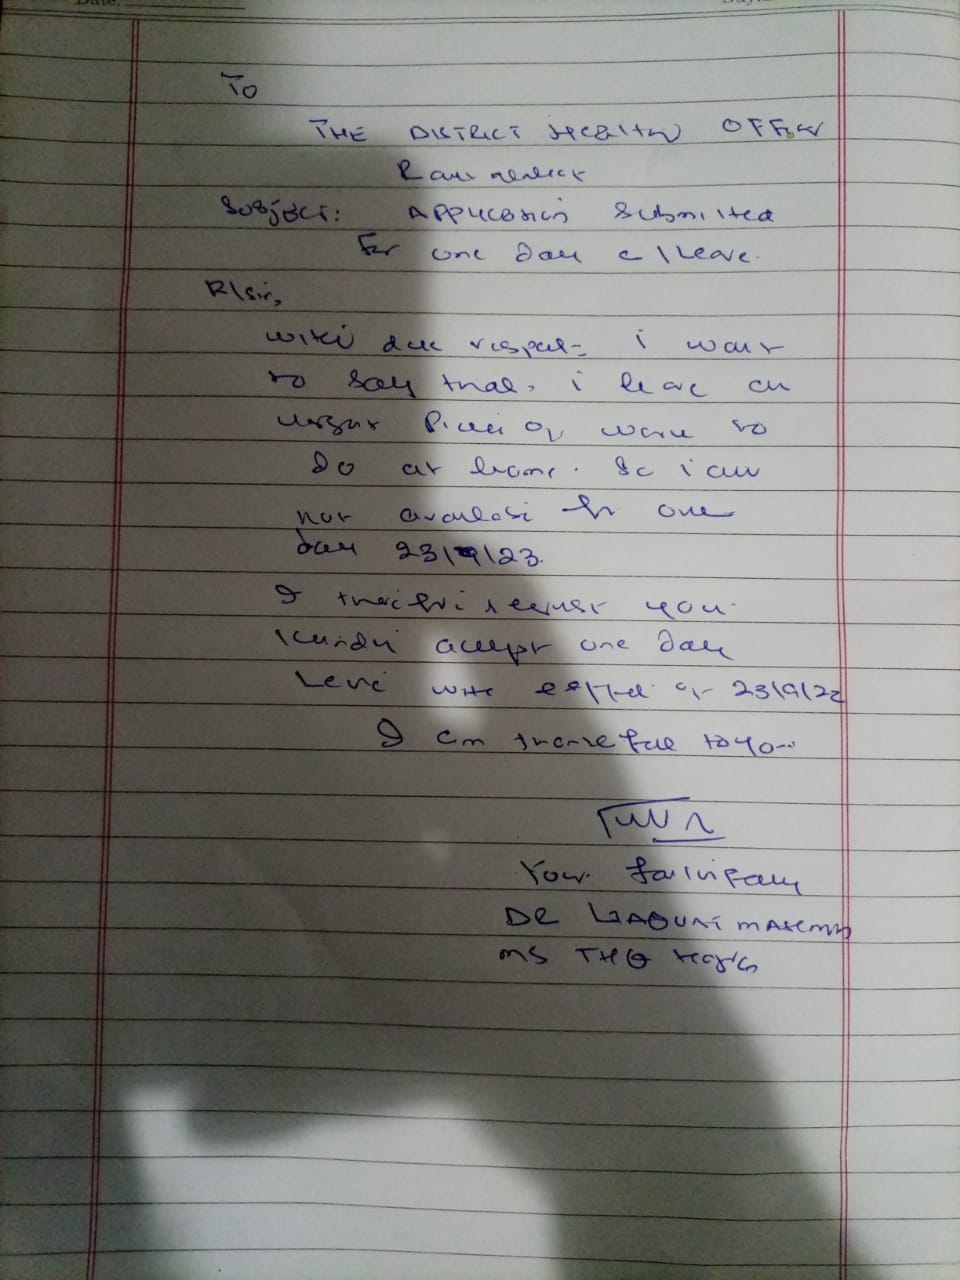 To
THE DISTRICT Health OFFicer
Subject: Application Submitted
For one Day c/leave.
R/sir,
with due respect i want
to say that, i have an
urgent Piece of work to
do at home. So i am
not available for one
day 23/9/23.
I therefore request you
kindly accept one day
Leave with effect of 23/9/23
I am thankful to you
Your faithfully
DR LIAQUAT
MS THQ